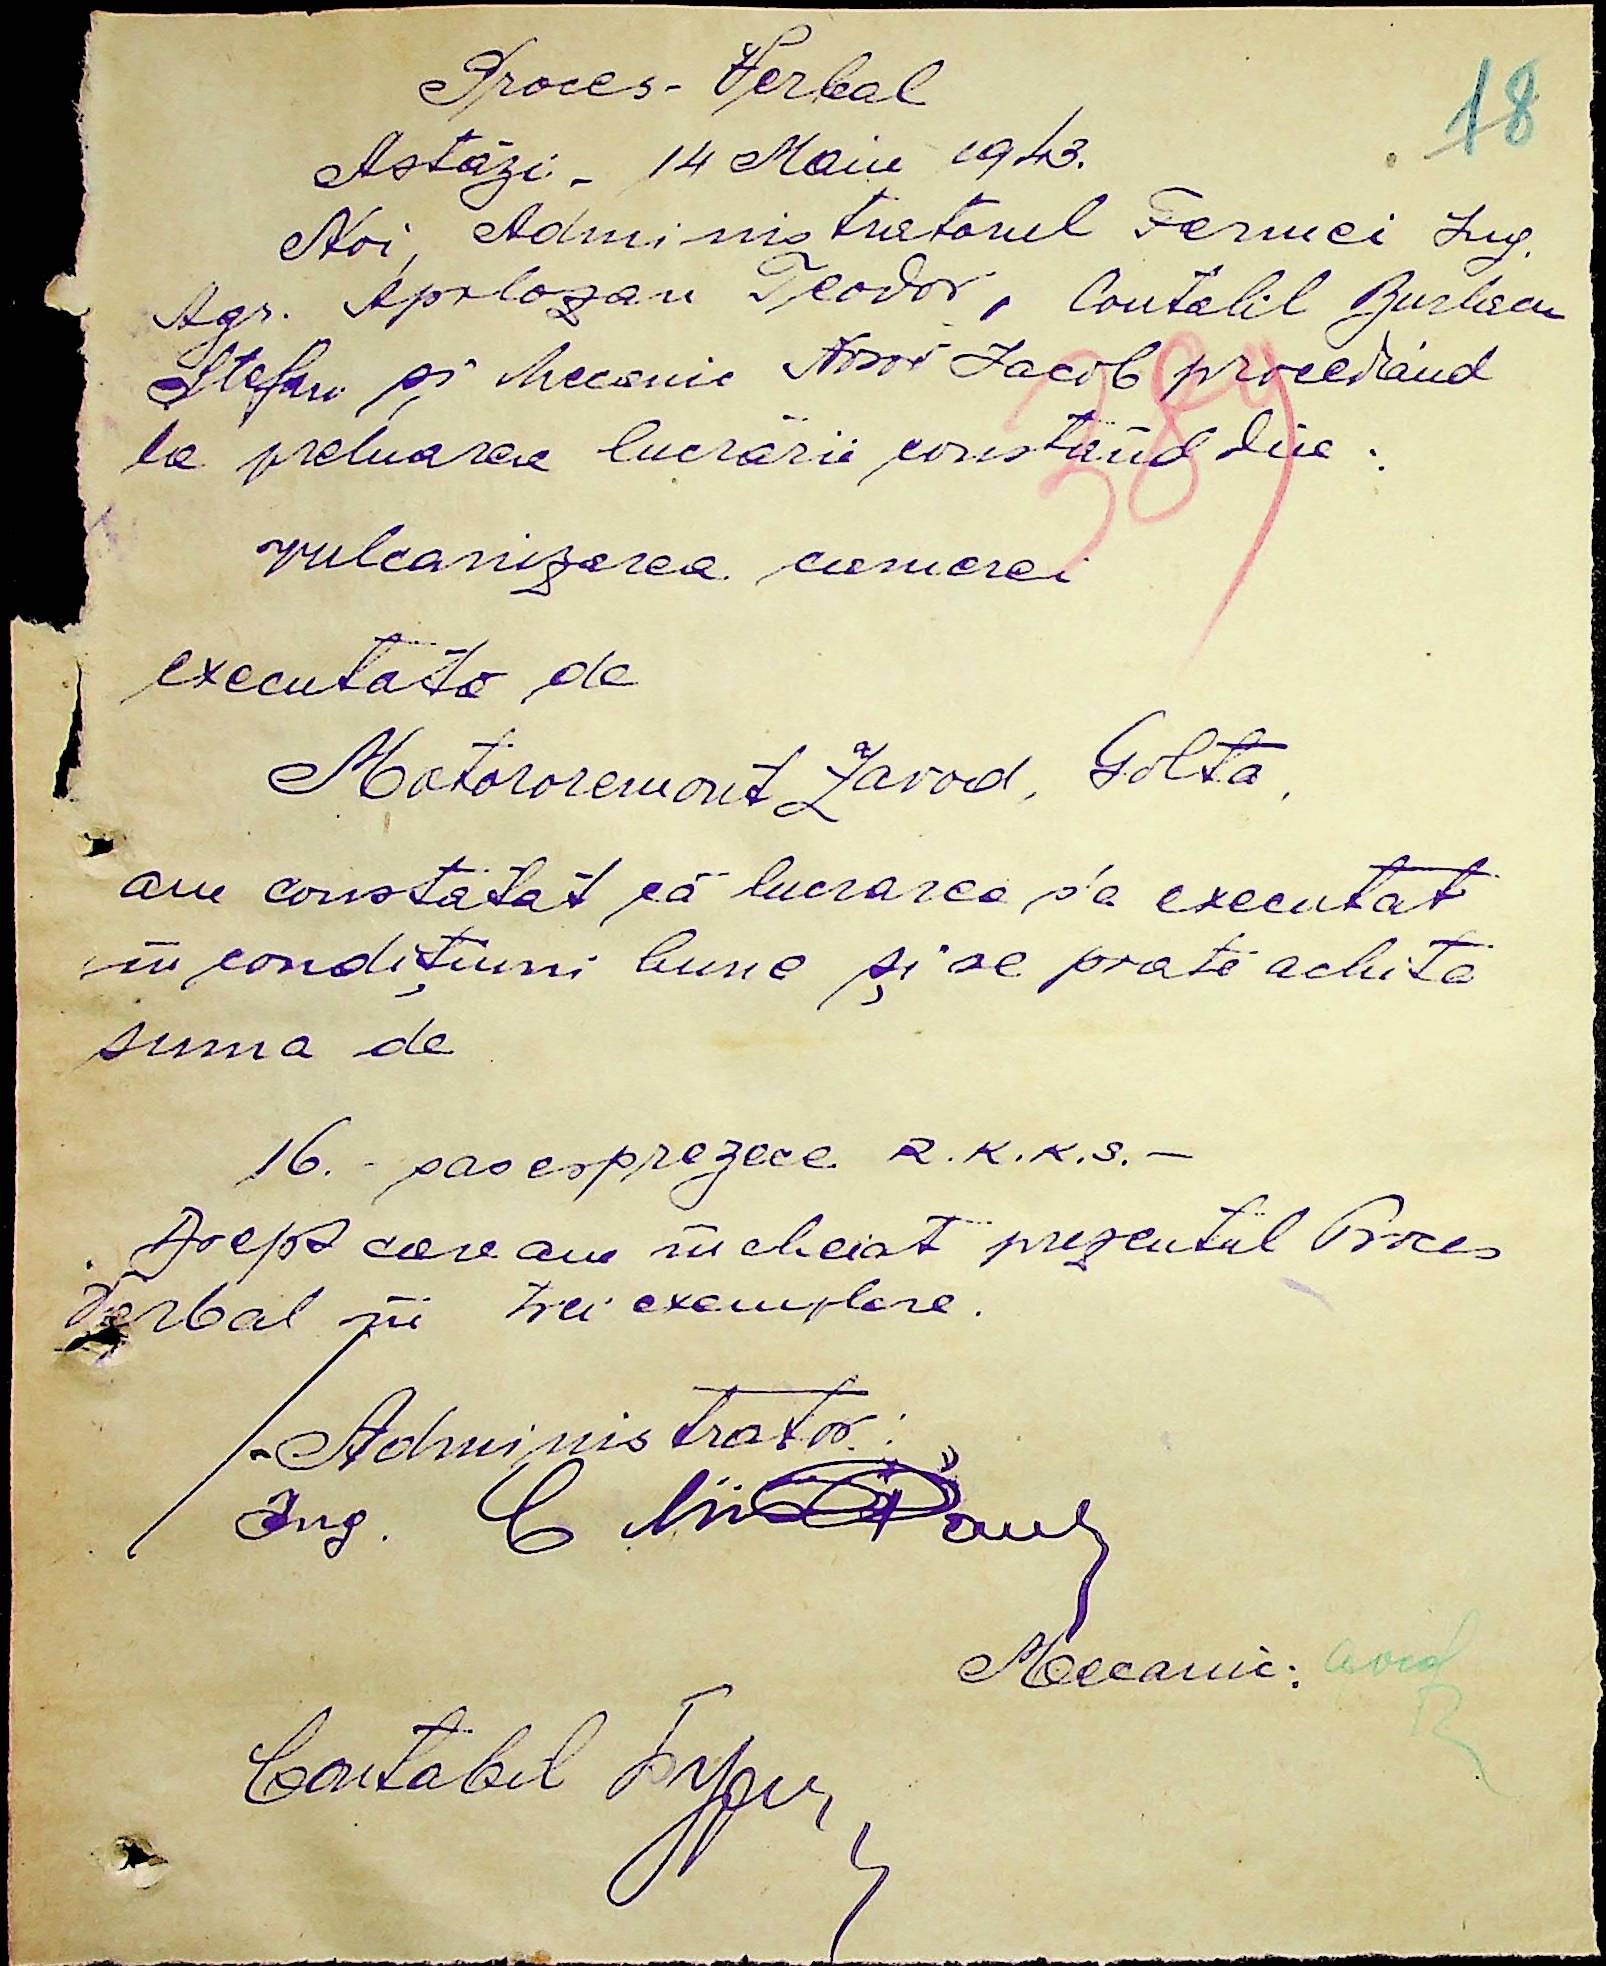 18
Proces-Verbal
Astăzi - 14 Maiu 1943.
Noi, Administratorul Fermei Ing.
Agr. Aprlozan Teodor, Contabil
Ștefan și Mecanic Iacob procedând
la preluarea lucrării constând din:
389
vulcanizarea camerei
executată de
Motororemont Zavod, Golta,
am constatat că lucrarea s'a executat
în condițiuni bune și se poate achita
suma de
16.- șasesprezece R.K.K.S.-
Drept care am încheiat prezentul Proces
Verbal în trei exemplare.
Administrator:
Ing.
Mecanic:
Contabil